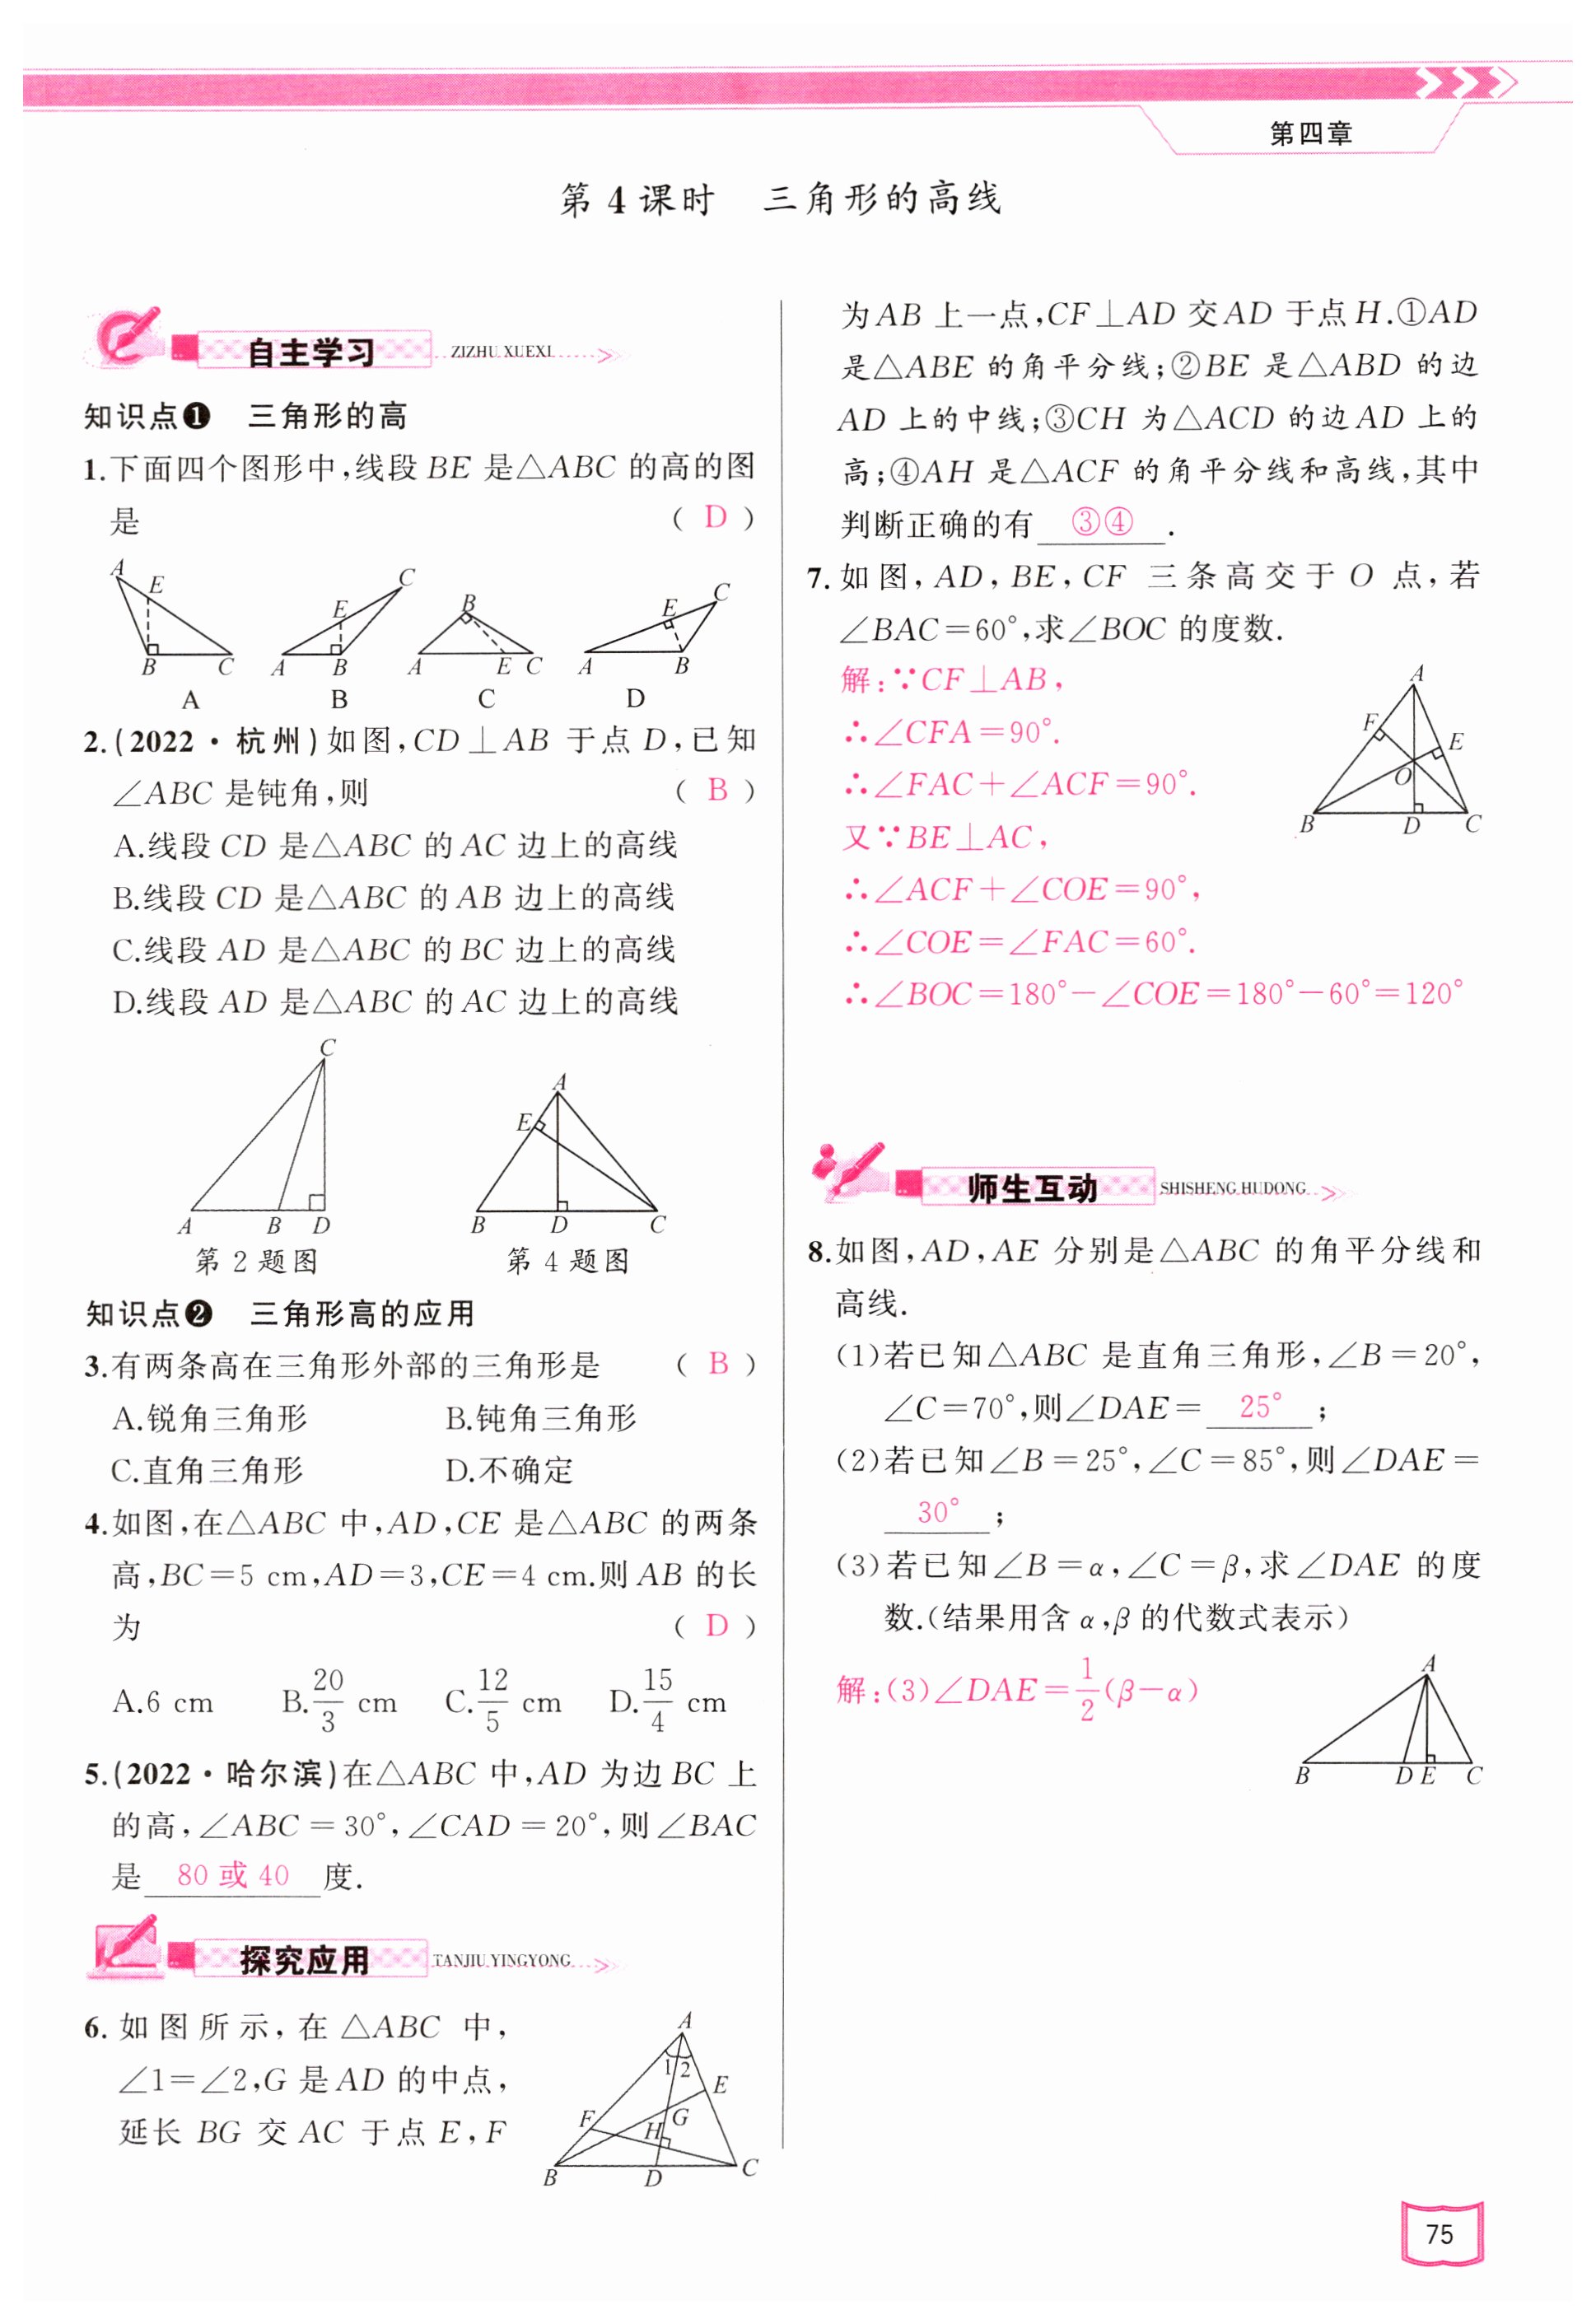 第四章
第4课时 三角形的高线
自主学习 ZIZHU XUEXI
知识点❶ 三角形的高
1.下面四个图形中,线段BE是△ABC的高的图
是 ( D )
A E B C
A B E C
A B E C
A B E C
A B C D
2.(2022·杭州)如图,CD⊥AB于点D,已知
∠ABC是钝角,则 ( B )
A.线段CD是△ABC的AC边上的高线
B.线段CD是△ABC的AB边上的高线
C.线段AD是△ABC的BC边上的高线
D.线段AD是△ABC的AC边上的高线
C A B D
A E B D C
第2题图 第4题图
知识点❷ 三角形高的应用
3.有两条高在三角形外部的三角形是 ( B )
A.锐角三角形 B.钝角三角形
C.直角三角形 D.不确定
4.如图,在△ABC中,AD,CE是△ABC的两条
高,BC=5 cm,AD=3,CE=4 cm.则AB的长
为 ( D )
A.6 cm B.20/3 cm C.12/5 cm D.15/4 cm
5.(2022·哈尔滨)在△ABC中,AD为边BC上
的高,∠ABC=30°,∠CAD=20°,则∠BAC
是 80或40 度.
探究应用 TANJIU YINGYONG
6.如图所示,在△ABC中,
∠1=∠2,G是AD的中点,
延长BG交AC于点E,F
A 1 2 E F G H B D C
为AB上一点,CF⊥AD交AD于点H.①AD
是△ABE的角平分线;②BE是△ABD的边
AD上的中线;③CH为△ACD的边AD上的
高;④AH是△ACF的角平分线和高线,其中
判断正确的有 ③④ .
7.如图,AD,BE,CF三条高交于O点,若
∠BAC=60°,求∠BOC的度数.
解:∵CF⊥AB,
∴∠CFA=90°.
∴∠FAC+∠ACF=90°.
又∵BE⊥AC,
∴∠ACF+∠COE=90°,
∴∠COE=∠FAC=60°.
∴∠BOC=180°-∠COE=180°-60°=120°
A F E O B D C
师生互动 SHISHENG HUDONG
8.如图,AD,AE分别是△ABC的角平分线和
高线.
(1)若已知△ABC是直角三角形,∠B=20°,
∠C=70°,则∠DAE= 25° ;
(2)若已知∠B=25°,∠C=85°,则∠DAE=
30° ;
(3)若已知∠B=α,∠C=β,求∠DAE的度
数.(结果用含α,β的代数式表示)
解:(3)∠DAE=1/2(β-α)
A B D E C
75